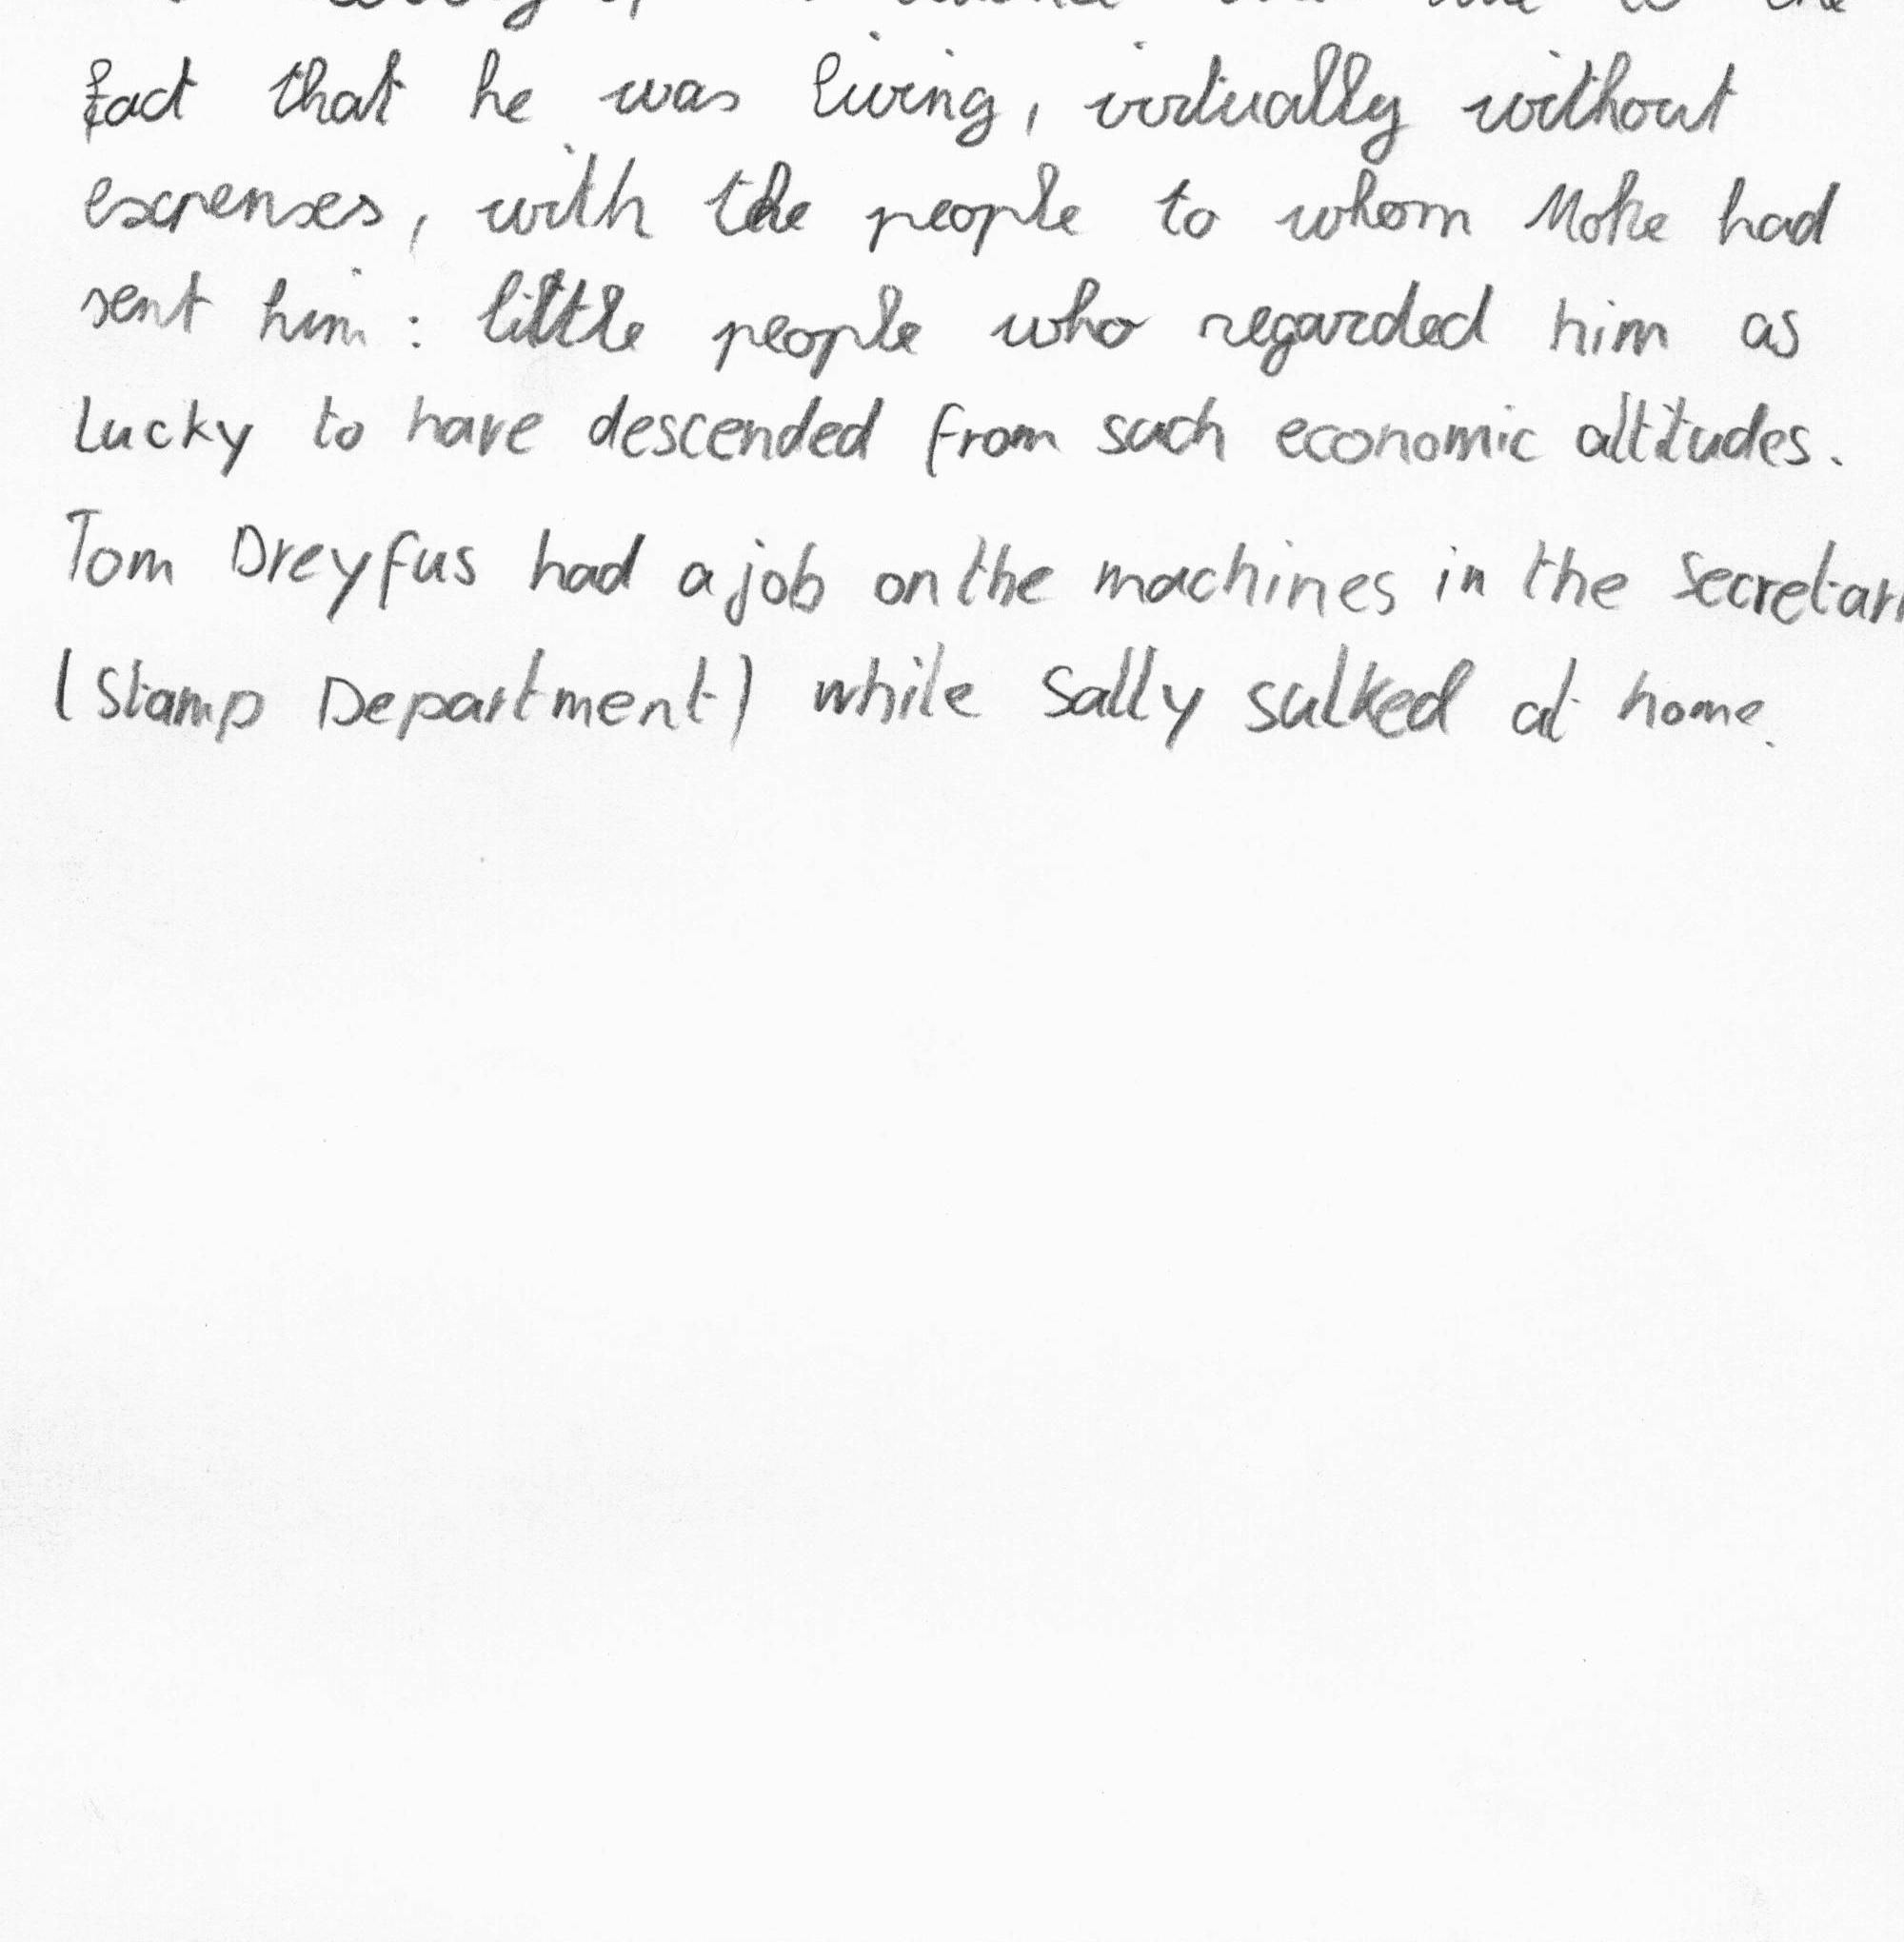 fact that he was living, virtually without
expenses, with the people to whom Moke had
sent him : little people who regarded him as
lucky to have descended from such economic altitudes.
Tom Dreyfus had a job on the machines in the
(Stamp Department) while Sally sulked at home.